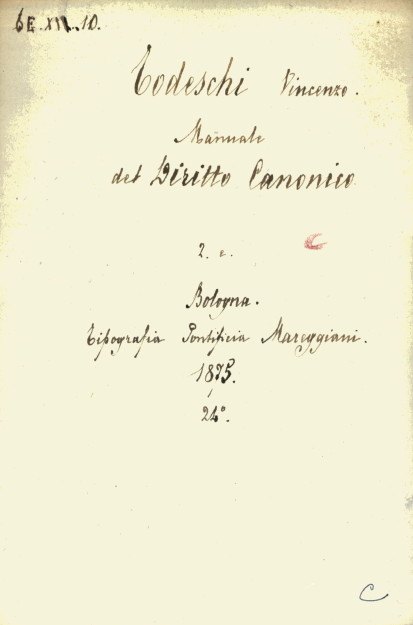 6E.XII.10.
Todeschi Vincenzo.
Manuale
del Diritto Canonico
2. e.
Bologna.
Tipografia Pontificia Mareggiani.
1875.
24°.
C